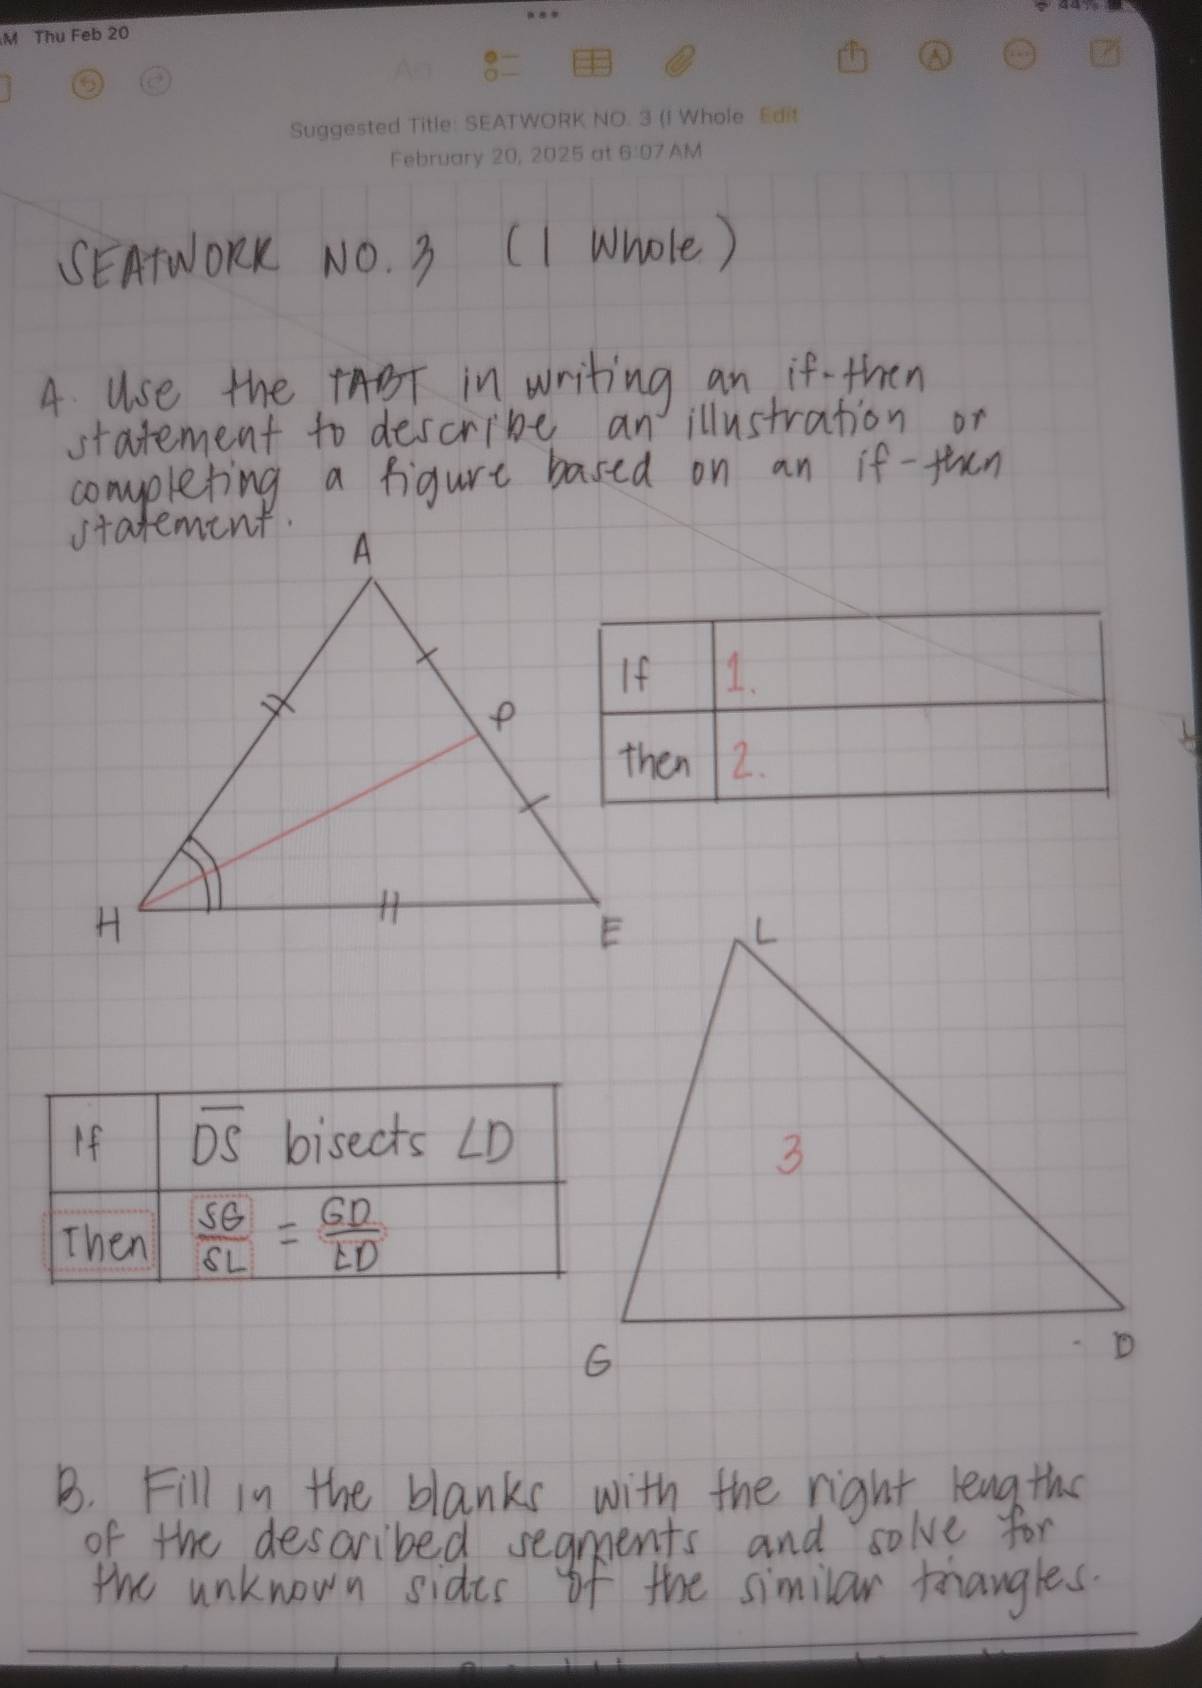 AM Thu Feb 20
44%
Suggested Title: SEATWORK NO. 3 (1 Whole Edit
February 20, 2025 at 6:07 AM
SEATWORK NO. 3 (1 Whole)
A. Use the TABT in writing an if-then
statement to describe an illustration or
completing a figure based on an if-then
statement.
A
P
H
E
If 1.
then 2.
L
3
G
D
If DS bisects ∠D
Then SG/SL = GD/LD
B. Fill in the blanks with the right lengths
of the described segments and solve for
the unknown sides of the similar triangles.